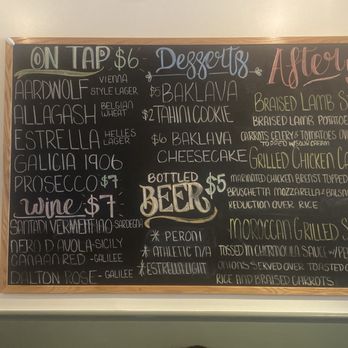 ON TAP $6
AARDWOLF VIENNA STYLE LAGER
ALLAGASH BELGIAN WHEAT
ESTRELLA HELLES LAGER
GALICIA 1906
PROSECCO $7
Wine $7
SANTARI VERMENTINO - SARDEGNA
NERO D AVOLA - SICILY
CANAAN RED - GALILEE
DALTON ROSE - GALILEE
Desserts
$5 BAKLAVA
$2 TAHINI COOKIE
$6 BAKLAVA
CHEESECAKE
BOTTLED
BEER $5
* PERONI
* ATHLETIC N/A
* ESTRELLA LIGHT
After
BRAISED LAMB S
BRAISED LAMB, POTATOE
CARROTS CELERY & TOMATOES OVE
TOPPED W/ SOUR CREAM
GRILLED CHICKEN CA
MARINATED CHICKEN BREAST TOPPED
BRUSCHETTA MOZZARELLA & BALSA
REDUCTION OVER RICE
MOROCCAN GRILLED S
TOSSED IN CHERMOULA SAUCE W/ PE
ONIONS SERVED OVER TOASTED
RICE AND BRAISED CARROTS